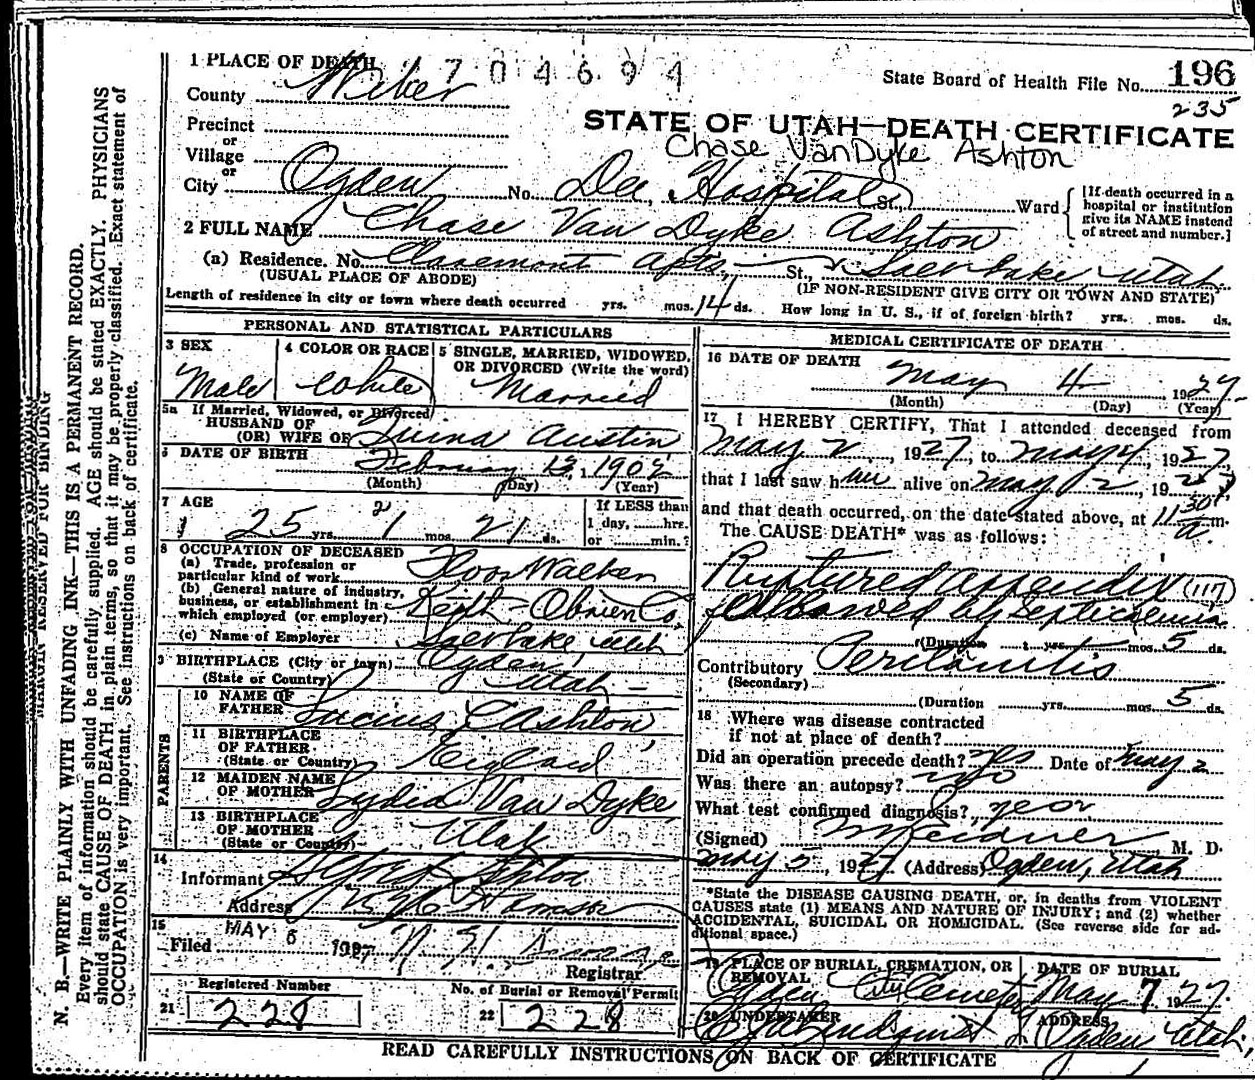 1 PLACE OF DEATH 2704694
State Board of Health File No. 196
235
County Weber
STATE OF UTAH—DEATH CERTIFICATE
Precinct
or
Village
or
Chase VanDyke Ashton
City Ogden No. Dee Hospital St., Ward
[If death occurred in a hospital or institution give its NAME instead of street and number.]
2 FULL NAME Chase Van Dyke Ashton
(a) Residence. No. Claremont Apts, St., Salt Lake, Utah
(USUAL PLACE OF ABODE) (IF NON-RESIDENT GIVE CITY OR TOWN AND STATE)
Length of residence in city or town where death occurred yrs. mos. 14 ds. How long in U. S., if of foreign birth? yrs. mos. ds.
PERSONAL AND STATISTICAL PARTICULARS
3 SEX 4 COLOR OR RACE 5 SINGLE, MARRIED, WIDOWED, OR DIVORCED (Write the word)
Male White Married
5a If Married, Widowed, or Divorced
HUSBAND OF
(OR) WIFE OF Austin
6 DATE OF BIRTH February 13, 1902
(Month) (Day) (Year)
7 AGE If LESS than
25 yrs. mos. 21 ds. 1 day, hrs.
or min.?
8 OCCUPATION OF DECEASED
(a) Trade, profession or
particular kind of work Floor Walker
(b) General nature of industry,
business, or establishment in
which employed (or employer) Keith-Obrien Co.
(c) Name of Employer Salt Lake, Utah
9 BIRTHPLACE (City or town) Ogden,
(State or Country) Utah
PARENTS
10 NAME OF
FATHER Ashton
11 BIRTHPLACE
OF FATHER
(State or Country) England
12 MAIDEN NAME
OF MOTHER Lydia Van Dyke
13 BIRTHPLACE
OF MOTHER
(State or Country) Utah
14
Informant
Address
15
Filed MAY 6 1927
Registrar
Registered Number No. of Burial or Removal Permit
21 228 22 228
MEDICAL CERTIFICATE OF DEATH
16 DATE OF DEATH May 4 1927
(Month) (Day) (Year)
17 I HEREBY CERTIFY, That I attended deceased from
May 2, 1927, to May 4, 1927,
that I last saw him alive on May 2, 1927
and that death occurred, on the date stated above, at 11 30 a.m.
The CAUSE DEATH* was as follows:
Ruptured appendix (117)
followed by septicemia
(Duration yrs. mos. 5 ds.
Contributory Peritonitis
(Secondary)
(Duration yrs. mos. 5 ds.
18 Where was disease contracted
if not at place of death?
Did an operation precede death? yes Date of May 2
Was there an autopsy? no
What test confirmed diagnosis?
(Signed) M. D.
May 5, 1927 (Address) Ogden, Utah
*State the DISEASE CAUSING DEATH, or, in deaths from VIOLENT
CAUSES state (1) MEANS AND NATURE OF INJURY; and (2) whether
ACCIDENTAL, SUICIDAL OR HOMICIDAL. (See reverse side for ad-
ditional space.)
19 PLACE OF BURIAL, CREMATION, OR REMOVAL DATE OF BURIAL
Ogden City Cemetery May 7 1927.
20 UNDERTAKER ADDRESS
Lindquist Ogden Utah,
READ CAREFULLY INSTRUCTIONS ON BACK OF CERTIFICATE
MARGIN RESERVED FOR BINDING
N. B.—WRITE PLAINLY WITH UNFADING INK—THIS IS A PERMANENT RECORD.
Every item of information should be carefully supplied. AGE should be stated EXACTLY. PHYSICIANS
should state CAUSE OF DEATH in plain terms, so that it may be properly classified. Exact statement of
OCCUPATION is very important. See instructions on back of certificate.